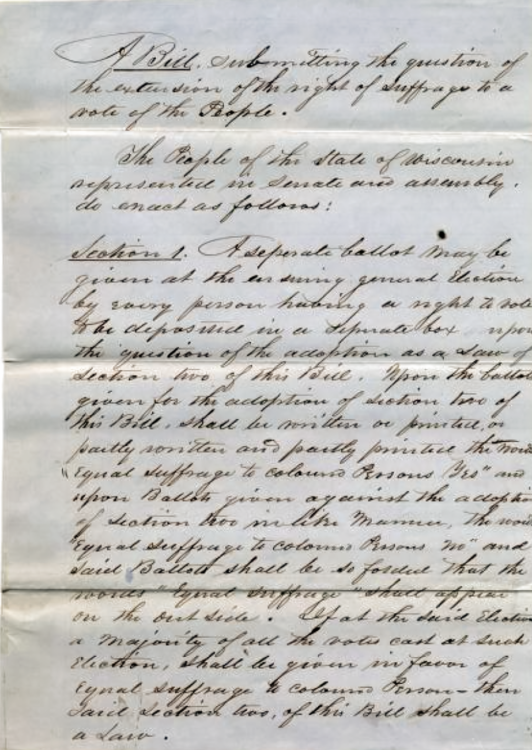 A Bill. submitting the question of
the extension of the right of suffrage to a
vote of the People.
The People of the State of Wisconsin
represented in Senate and assembly.
do enact as follows:
Section 1. A seperate ballot may be
given at the ensuing general Election
by every person having a right to vote
to be deposited in a seperate box upon
the question of the adoption as a Law of
Section two of this Bill. Upon the ballot
given for the adoption of section two of
this Bill, shall be written or printed, or
partly written and partly printed the word
"Equal suffrage to colored Persons Yes" and
upon Ballots given against the adopti
of section two in like manner, the word
"Equal suffrage to colored Persons no" and
said Ballots shall be so folded that the
words "Equal suffrage" shall appear
on the out side. If at the said Election
a majority of all the votes cast at such
Election, shall be given in favor of
Equal suffrage to colored Person - then
said section two, of this Bill shall be
a Law.